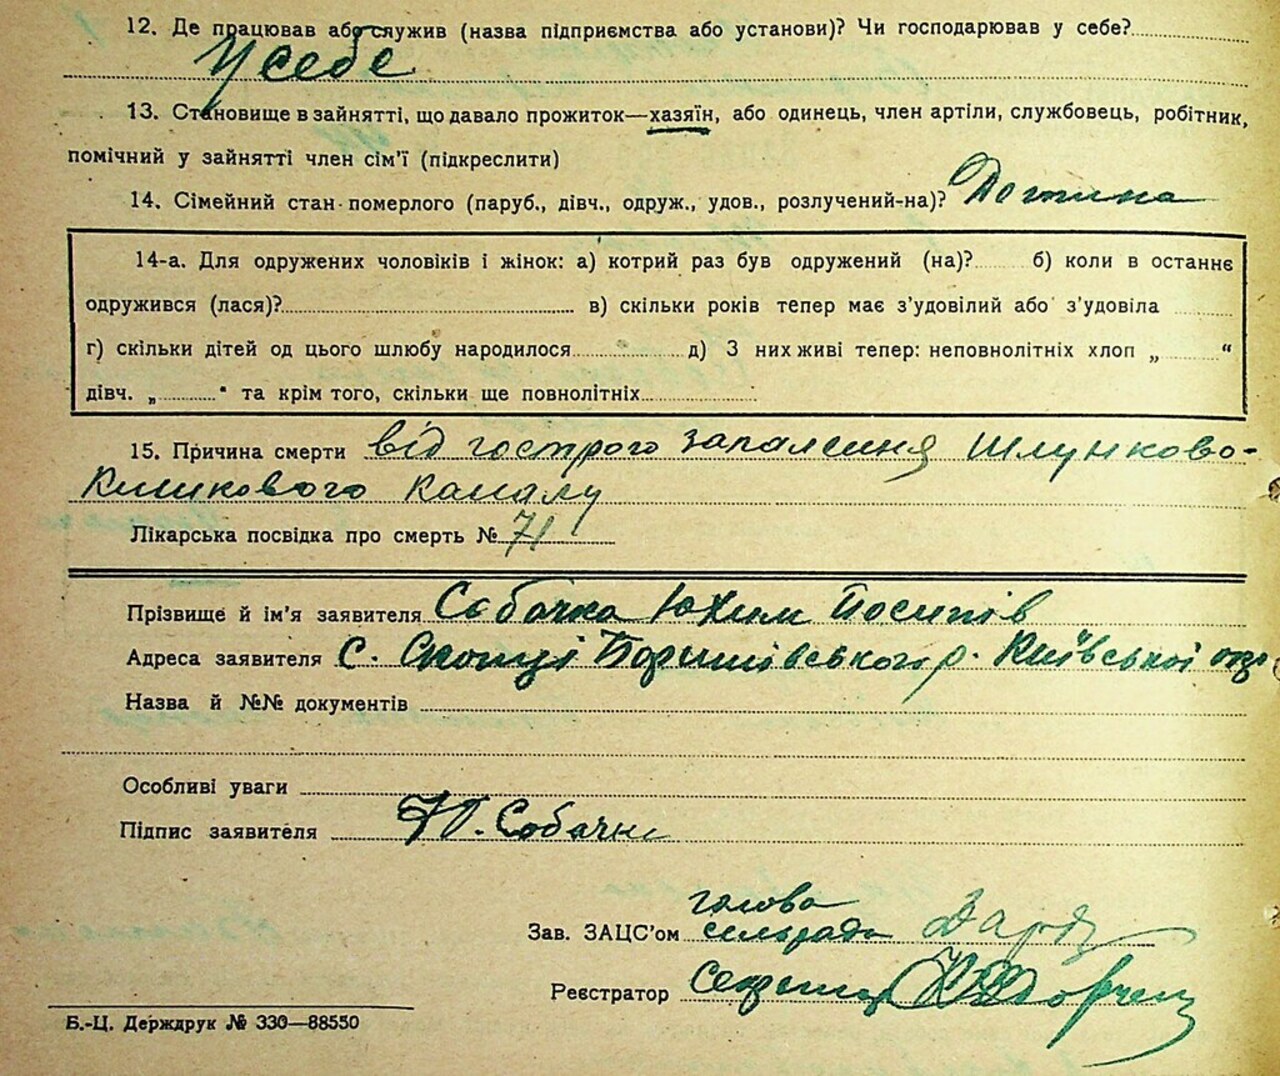 12. Де працював або служив (назва підприємства або установи)? Чи господарював у себе?
У себе
13. Становище в зайнятті, що давало прожиток—хазяїн, або одинець, член артіли, службовець, робітник,
помічний у зайнятті член сім'ї (підкреслити)
14. Сімейний стан померлого (паруб., дівч., одруж., удов., розлучений-на)? Дитина
14-а. Для одружених чоловіків і жінок: а) котрий раз був одружений (на)? б) коли в останнє
одружився (лася)? в) скільки років тепер має з'удовілий або з'удовіла
г) скільки дітей од цього шлюбу народилося д) З них живі тепер: неповнолітніх хлоп „ “
дівч. „ “ та крім того, скільки ще повнолітніх
15. Причина смерти від гострого запалення шлунково-
кишкового каналу
Лікарська посвідка про смерть № 71
Прізвище й ім'я заявителя Собачка Юхим Йосипів
Адреса заявителя С. Скопці Боришівського р. Київської
Назва й №№ документів
Особливі уваги
Підпис заявителя Ю. Собачка
голова
Зав. ЗАЦС'ом сельради
Реєстратор Секретар
Б.-Ц. Держдрук № 330—88550